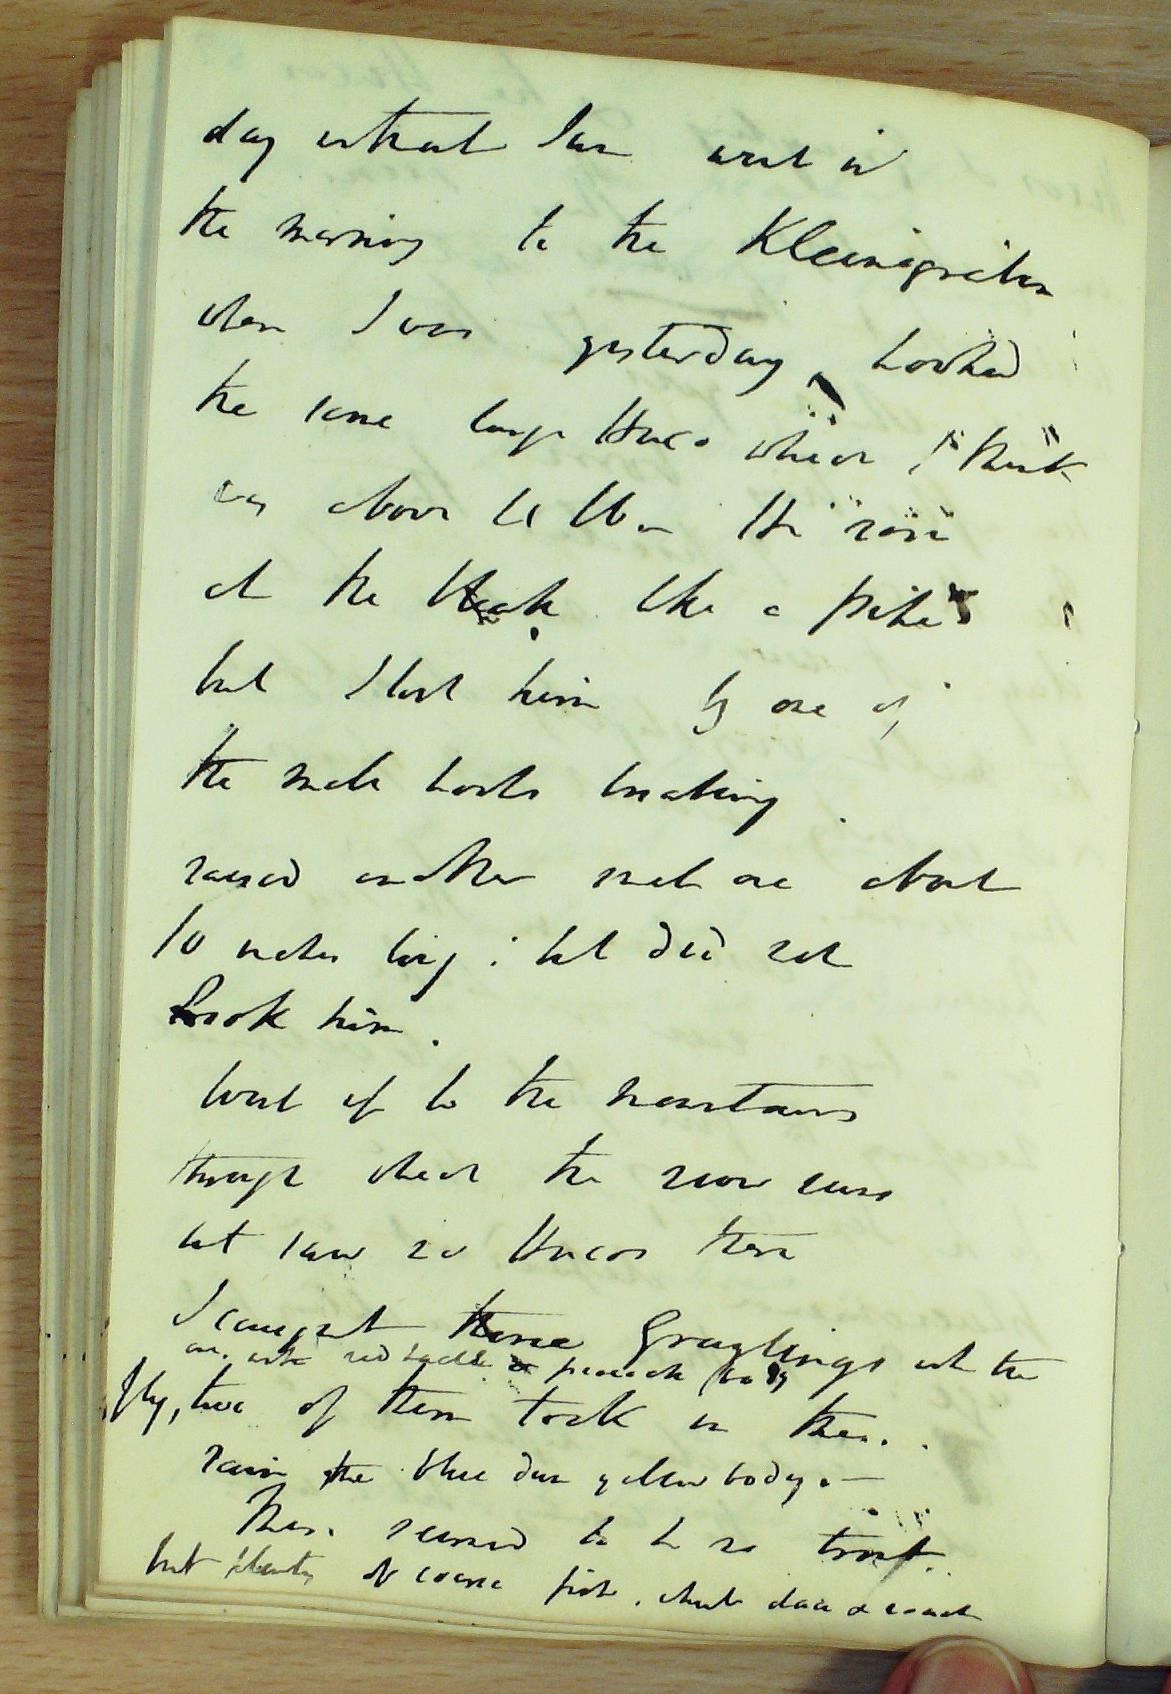 day without sun went in
the morning to the
where I was yesterday, hooked
the same large Huco which I think
was above 12 lb. He rose
at the bleak like a pike
but I lost him by one of
the small hooks breaking
raised another small one about
10 inches long; but did not
hook him.
Went up to the mountains
through which the river runs
but saw no Hucos there
I caught three Graylings with the
one with red tackle peacock body
fly, two of them took in the
rain the blue dun yellow body
There seemed to be no trout.
but plenty of coarse fish, chub dace & roach